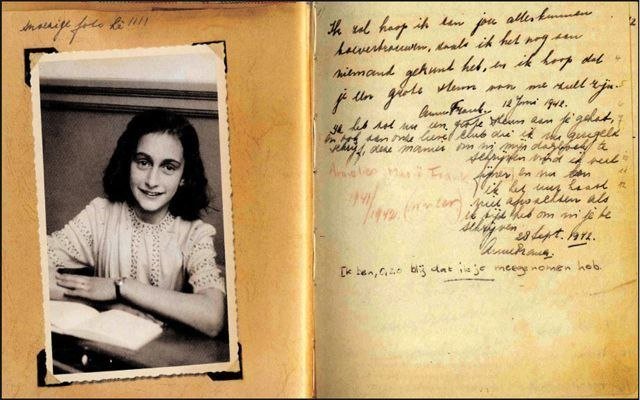 snoezige foto hè!!!!
Ik zal hoop ik aan jou alles kunnen
toevertrouwen, zoals ik het nog aan
niemand gekund heb, en ik hoop dat
je een grote steun voor me zult zijn.
Anne Frank. 12 Juni 1942.
Ik heb tot nu een grote steun aan je gehad,
en ook aan onze lieve club die ik nu geregeld
schrijf, deze manier om in mijn dagboek te
schrijven vind ik veel
fijner en nu kan
ik het uur haast
niet afwachten als
ik tijd heb om in je te
schrijven.
28 Sept. 1942.
Anne Frank.
Marie Frank
1941/
1942.
Ik ben, o, zo blij dat ik je meegenomen heb.